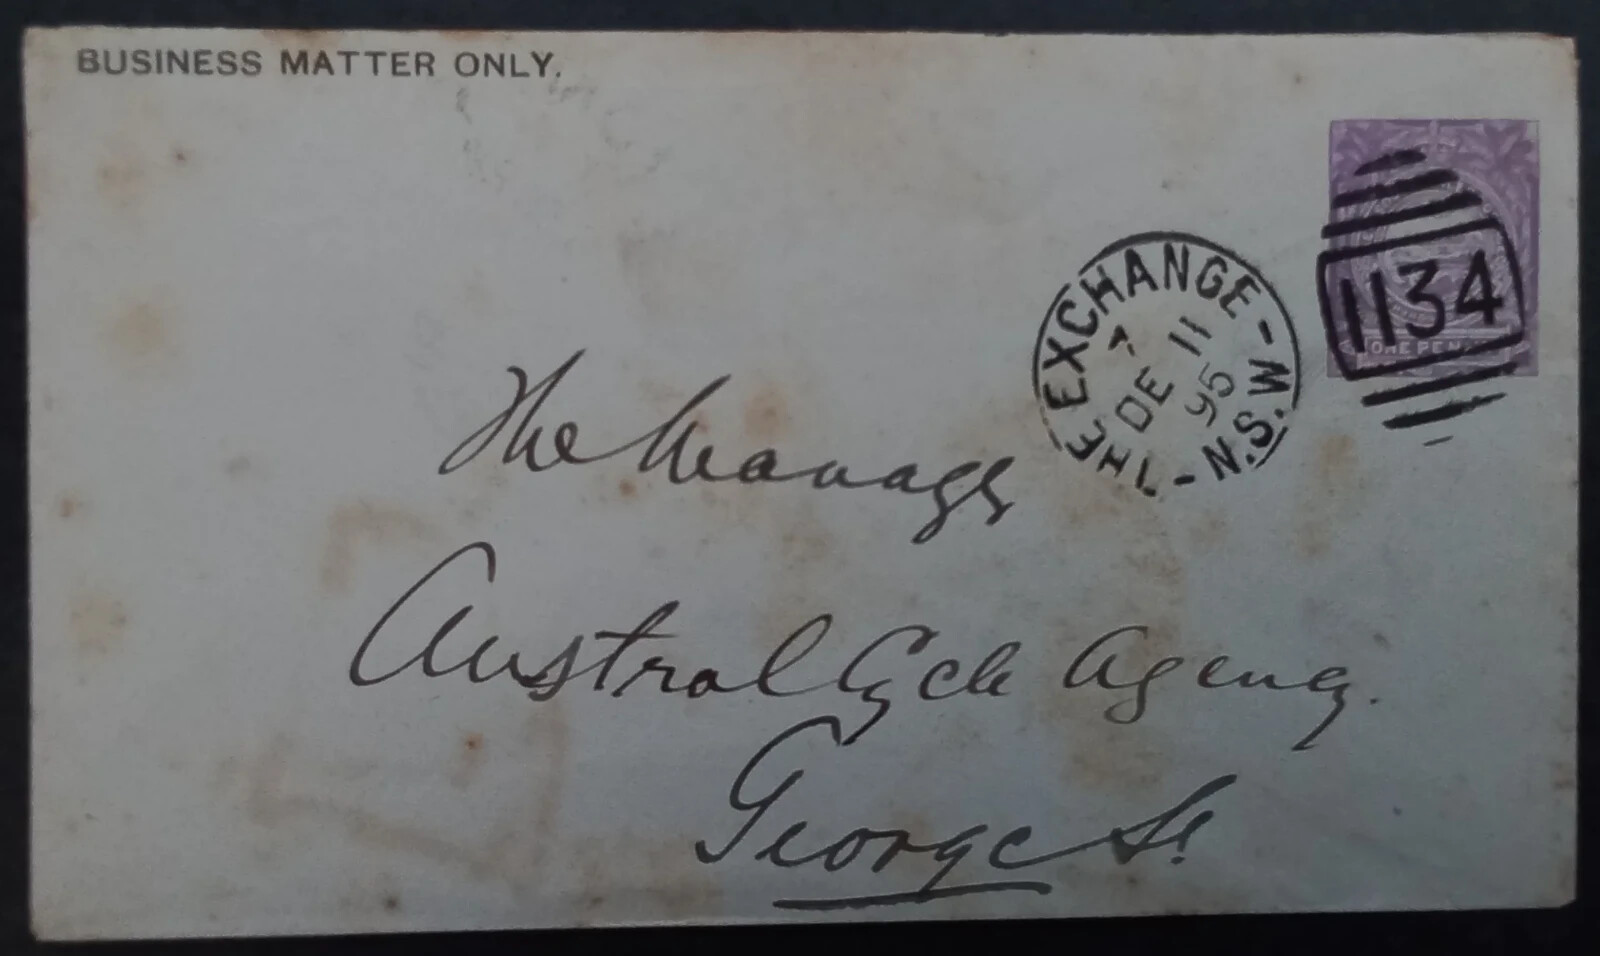 BUSINESS MATTER ONLY.
THE EXCHANGE - N.S.W -
7
DE 11
95
1134
ONE PENNY
The Manager
Austral Cycle Agency.
George St.